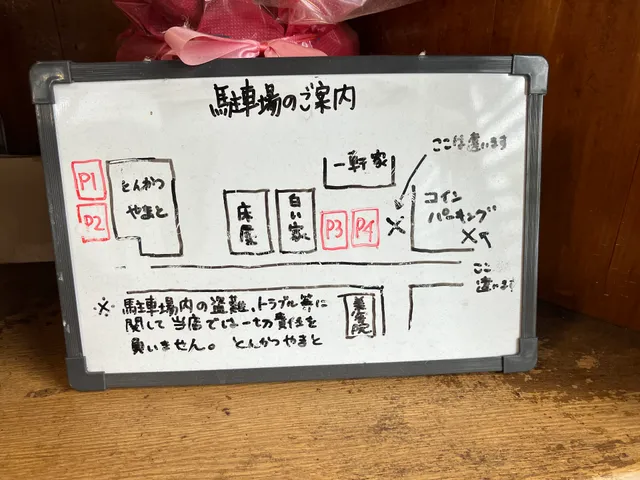 駐車場のご案内
P1
P2
とんかつ
やまと
床屋
白い家
一軒家
P3
P4
ここは違います
コイン
パーキング
ここ
違います
※ 駐車場内の盗難、トラブル等に
関して当店では一切責任を
負いません。 とんかつやまと
美容院